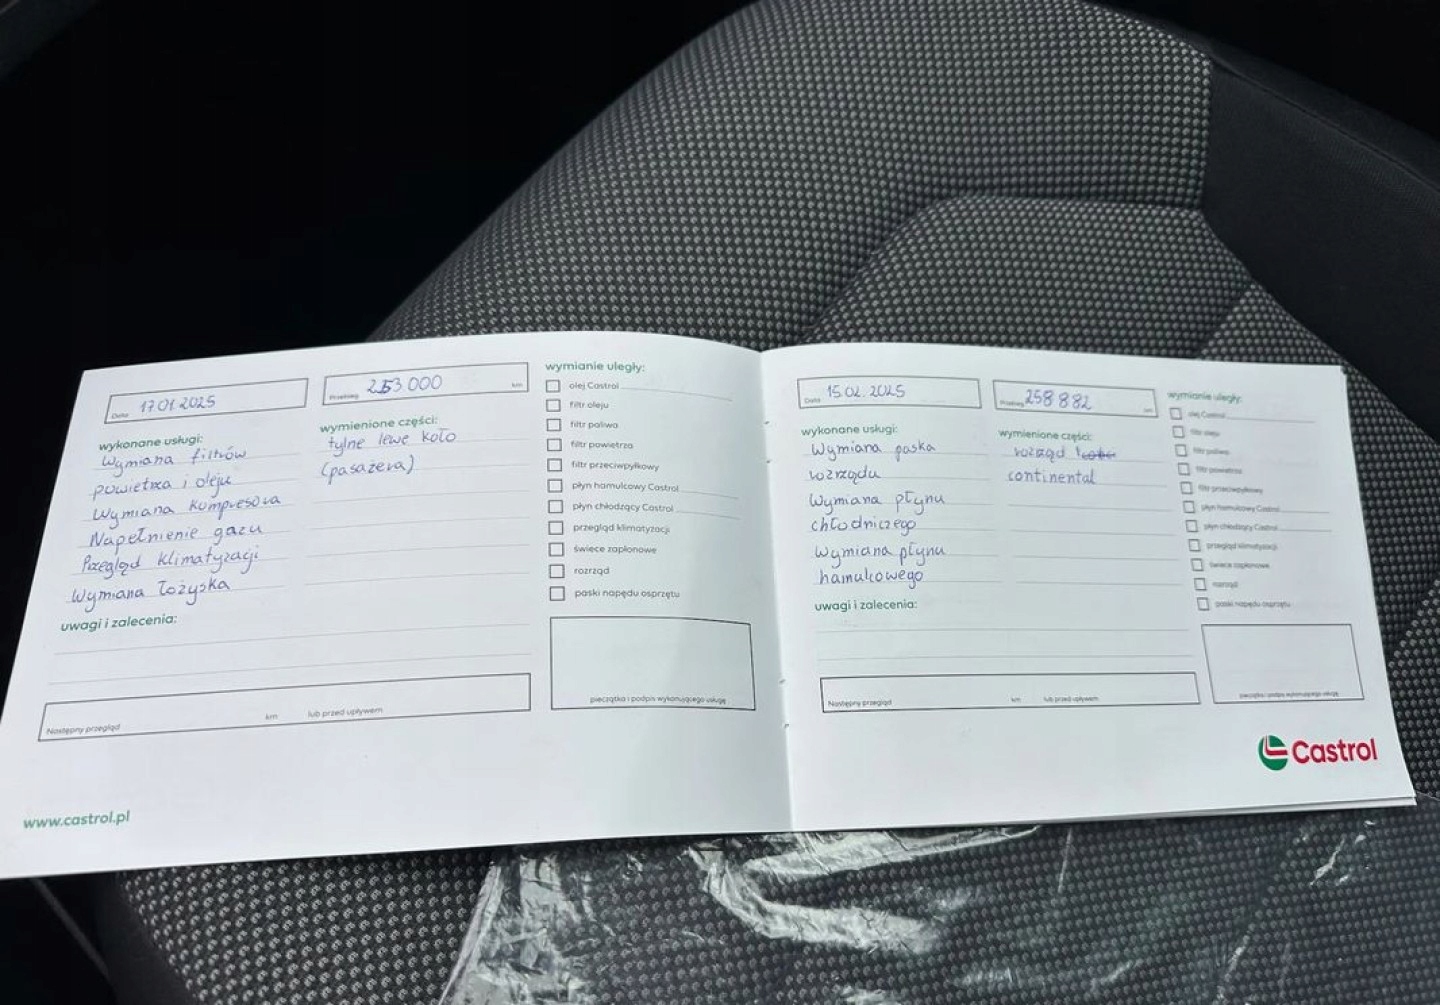 Data 17.01.2025
Przebieg 253.000 km
wykonane usługi:
Wymiana filtrów
powietrza i oleju
Wymiana kompresora
Napełnienie gazu
Przegląd klimatyzacji
Wymiana łożyska
wymienione części:
tylne lewe koło
(pasażera)
uwagi i zalecenia:
Następny przegląd km lub przed upływem
wymianie uległy:
olej Castrol
filtr oleju
filtr paliwa
filtr powietrza
filtr przeciwpyłkowy
płyn hamulcowy Castrol
płyn chłodzący Castrol
przegląd klimatyzacji
świece zapłonowe
rozrząd
paski napędu osprzętu
pieczątka i podpis wykonującego usługę
www.castrol.pl
Data 15.02.2025
Przebieg 258882 km
wykonane usługi:
Wymiana paska
rozrządu
Wymiana płynu
chłodniczego
Wymiana płynu
hamulcowego
wymienione części:
rozrząd
continental
uwagi i zalecenia:
Następny przegląd km lub przed upływem
wymianie uległy:
olej Castrol
filtr oleju
filtr paliwa
filtr powietrza
filtr przeciwpyłkowy
płyn hamulcowy Castrol
płyn chłodzący Castrol
przegląd klimatyzacji
świece zapłonowe
rozrząd
paski napędu osprzętu
pieczątka i podpis wykonującego usługę
Castrol